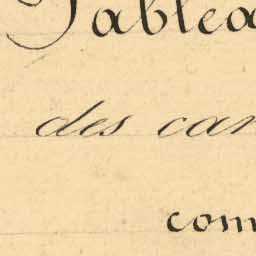 Tablea
des car
com